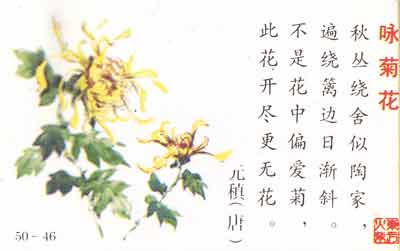 咏菊花
秋丛绕舍似陶家，
遍绕篱边日渐斜。
不是花中偏爱菊，
此花开尽更无花。
元稹（唐）
50-46